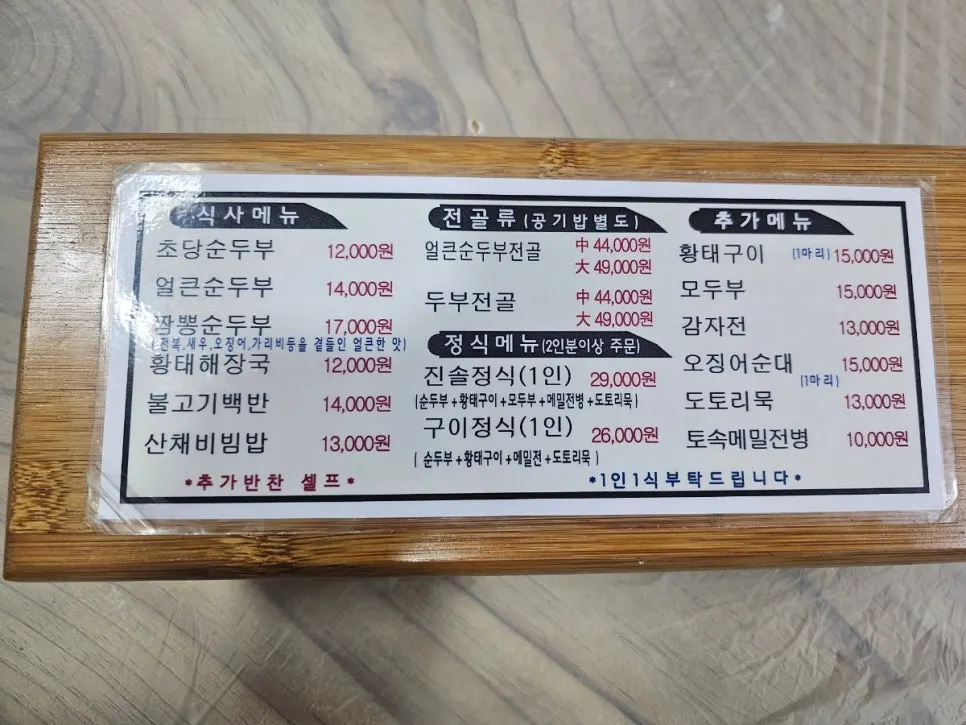 식사메뉴
초당순두부 12,000원
얼큰순두부 14,000원
짬뽕순두부 17,000원
(전복,새우,오징어,가리비등을 곁들인 얼큰한 맛)
황태해장국 12,000원
불고기백반 14,000원
산채비빔밥 13,000원
*추가반찬 셀프*
전골류(공기밥별도)
얼큰순두부전골 中 44,000원
大 49,000원
두부전골 中 44,000원
大 49,000원
정식메뉴(2인분이상 주문)
진솔정식(1인) 29,000원
(순두부+황태구이+모두부+메밀전병+도토리묵)
구이정식(1인) 26,000원
( 순두부+황태구이+메밀전+도토리묵 )
추가메뉴
황태구이 (1마리) 15,000원
모두부 15,000원
감자전 13,000원
오징어순대 15,000원
(1마리)
도토리묵 13,000원
토속메밀전병 10,000원
*1인1식부탁드립니다*